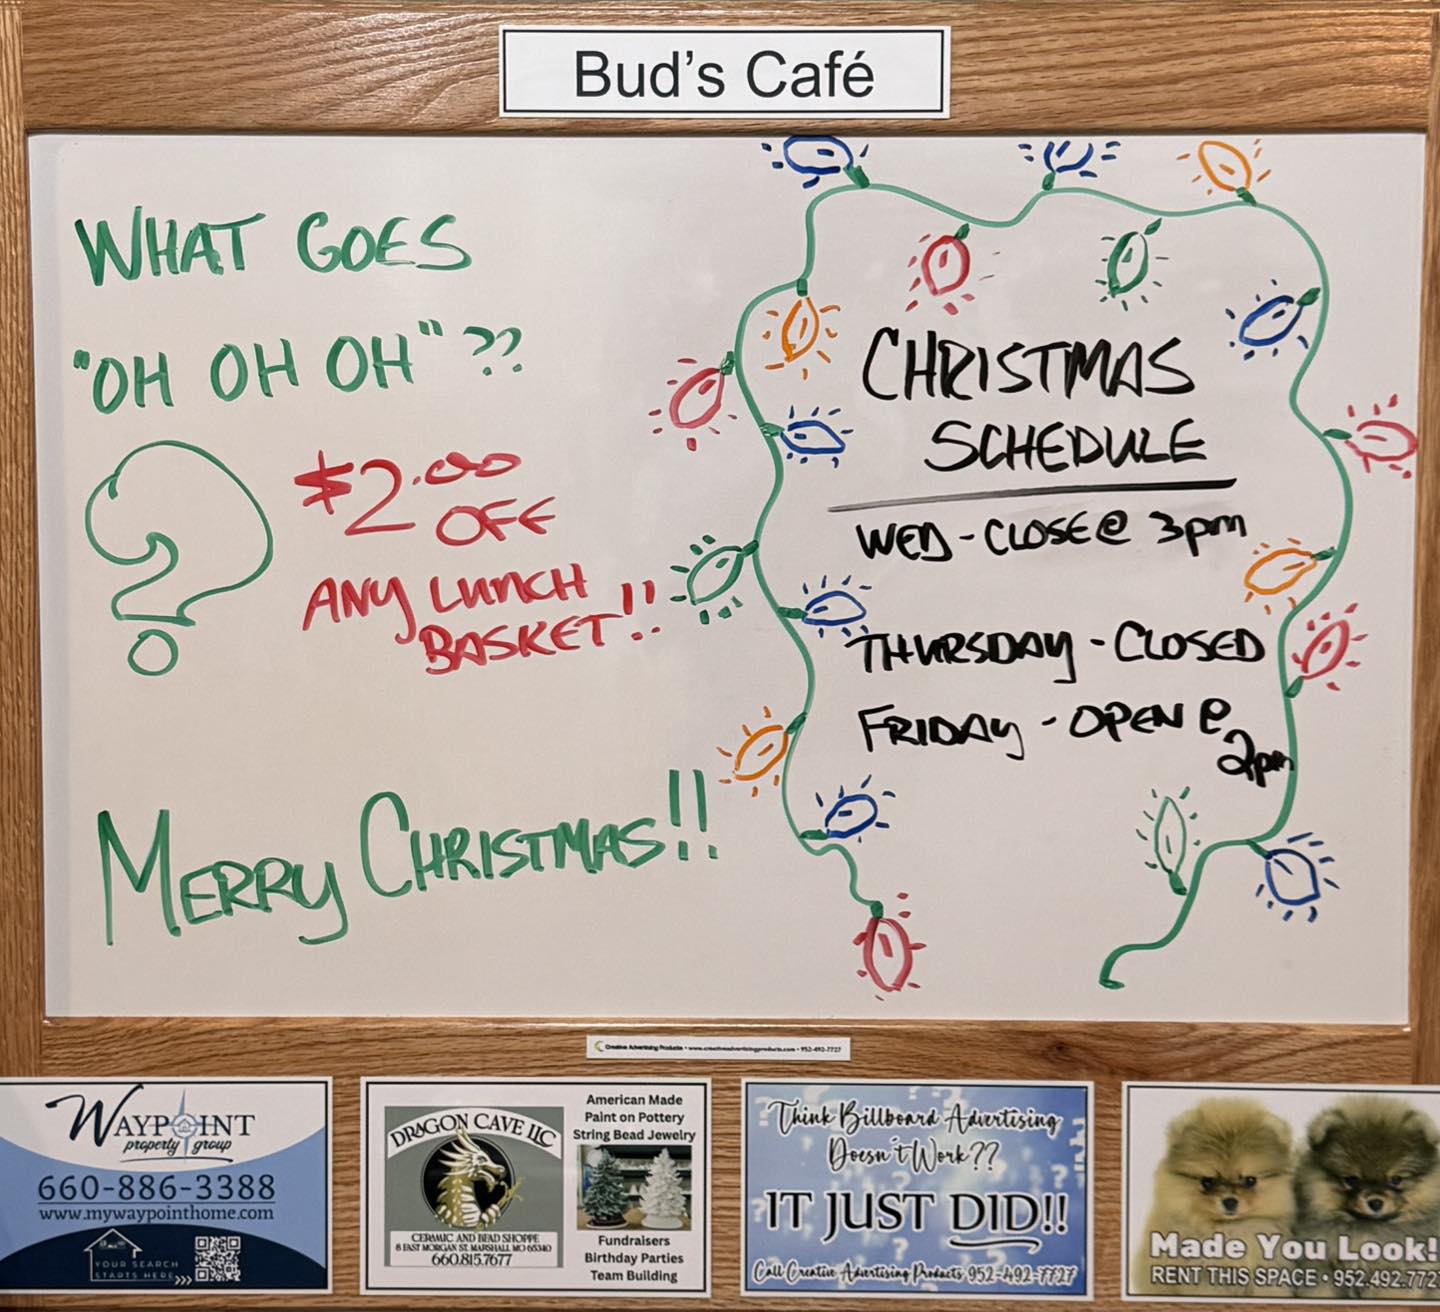 Bud's Café
WHAT GOES
"OH OH OH" ??
$2.00
OFF
ANY LUNCH
BASKET!!
MERRY CHRISTMAS!!
CHRISTMAS
SCHEDULE
WED - CLOSE @ 3pm
THURSDAY - CLOSED
FRIDAY - OPEN @
2pm
Creative Advertising Products • www.creativeadvertisingproducts.com • 952-492-7727
WAYPOINT
property group
660-886-3388
www.mywaypointhome.com
YOUR SEARCH
STARTS HERE
DRAGON CAVE LLC
CERAMIC AND BEAD SHOPPE
8 EAST MORGAN ST. MARSHALL MO 65340
660.815.7677
American Made
Paint on Pottery
String Bead Jewelry
Fundraisers
Birthday Parties
Team Building
Think Billboard Advertising
Doesn't Work??
IT JUST DID!!
Call Creative Advertising Products 952-492-7727
Made You Look!
RENT THIS SPACE • 952.492.772